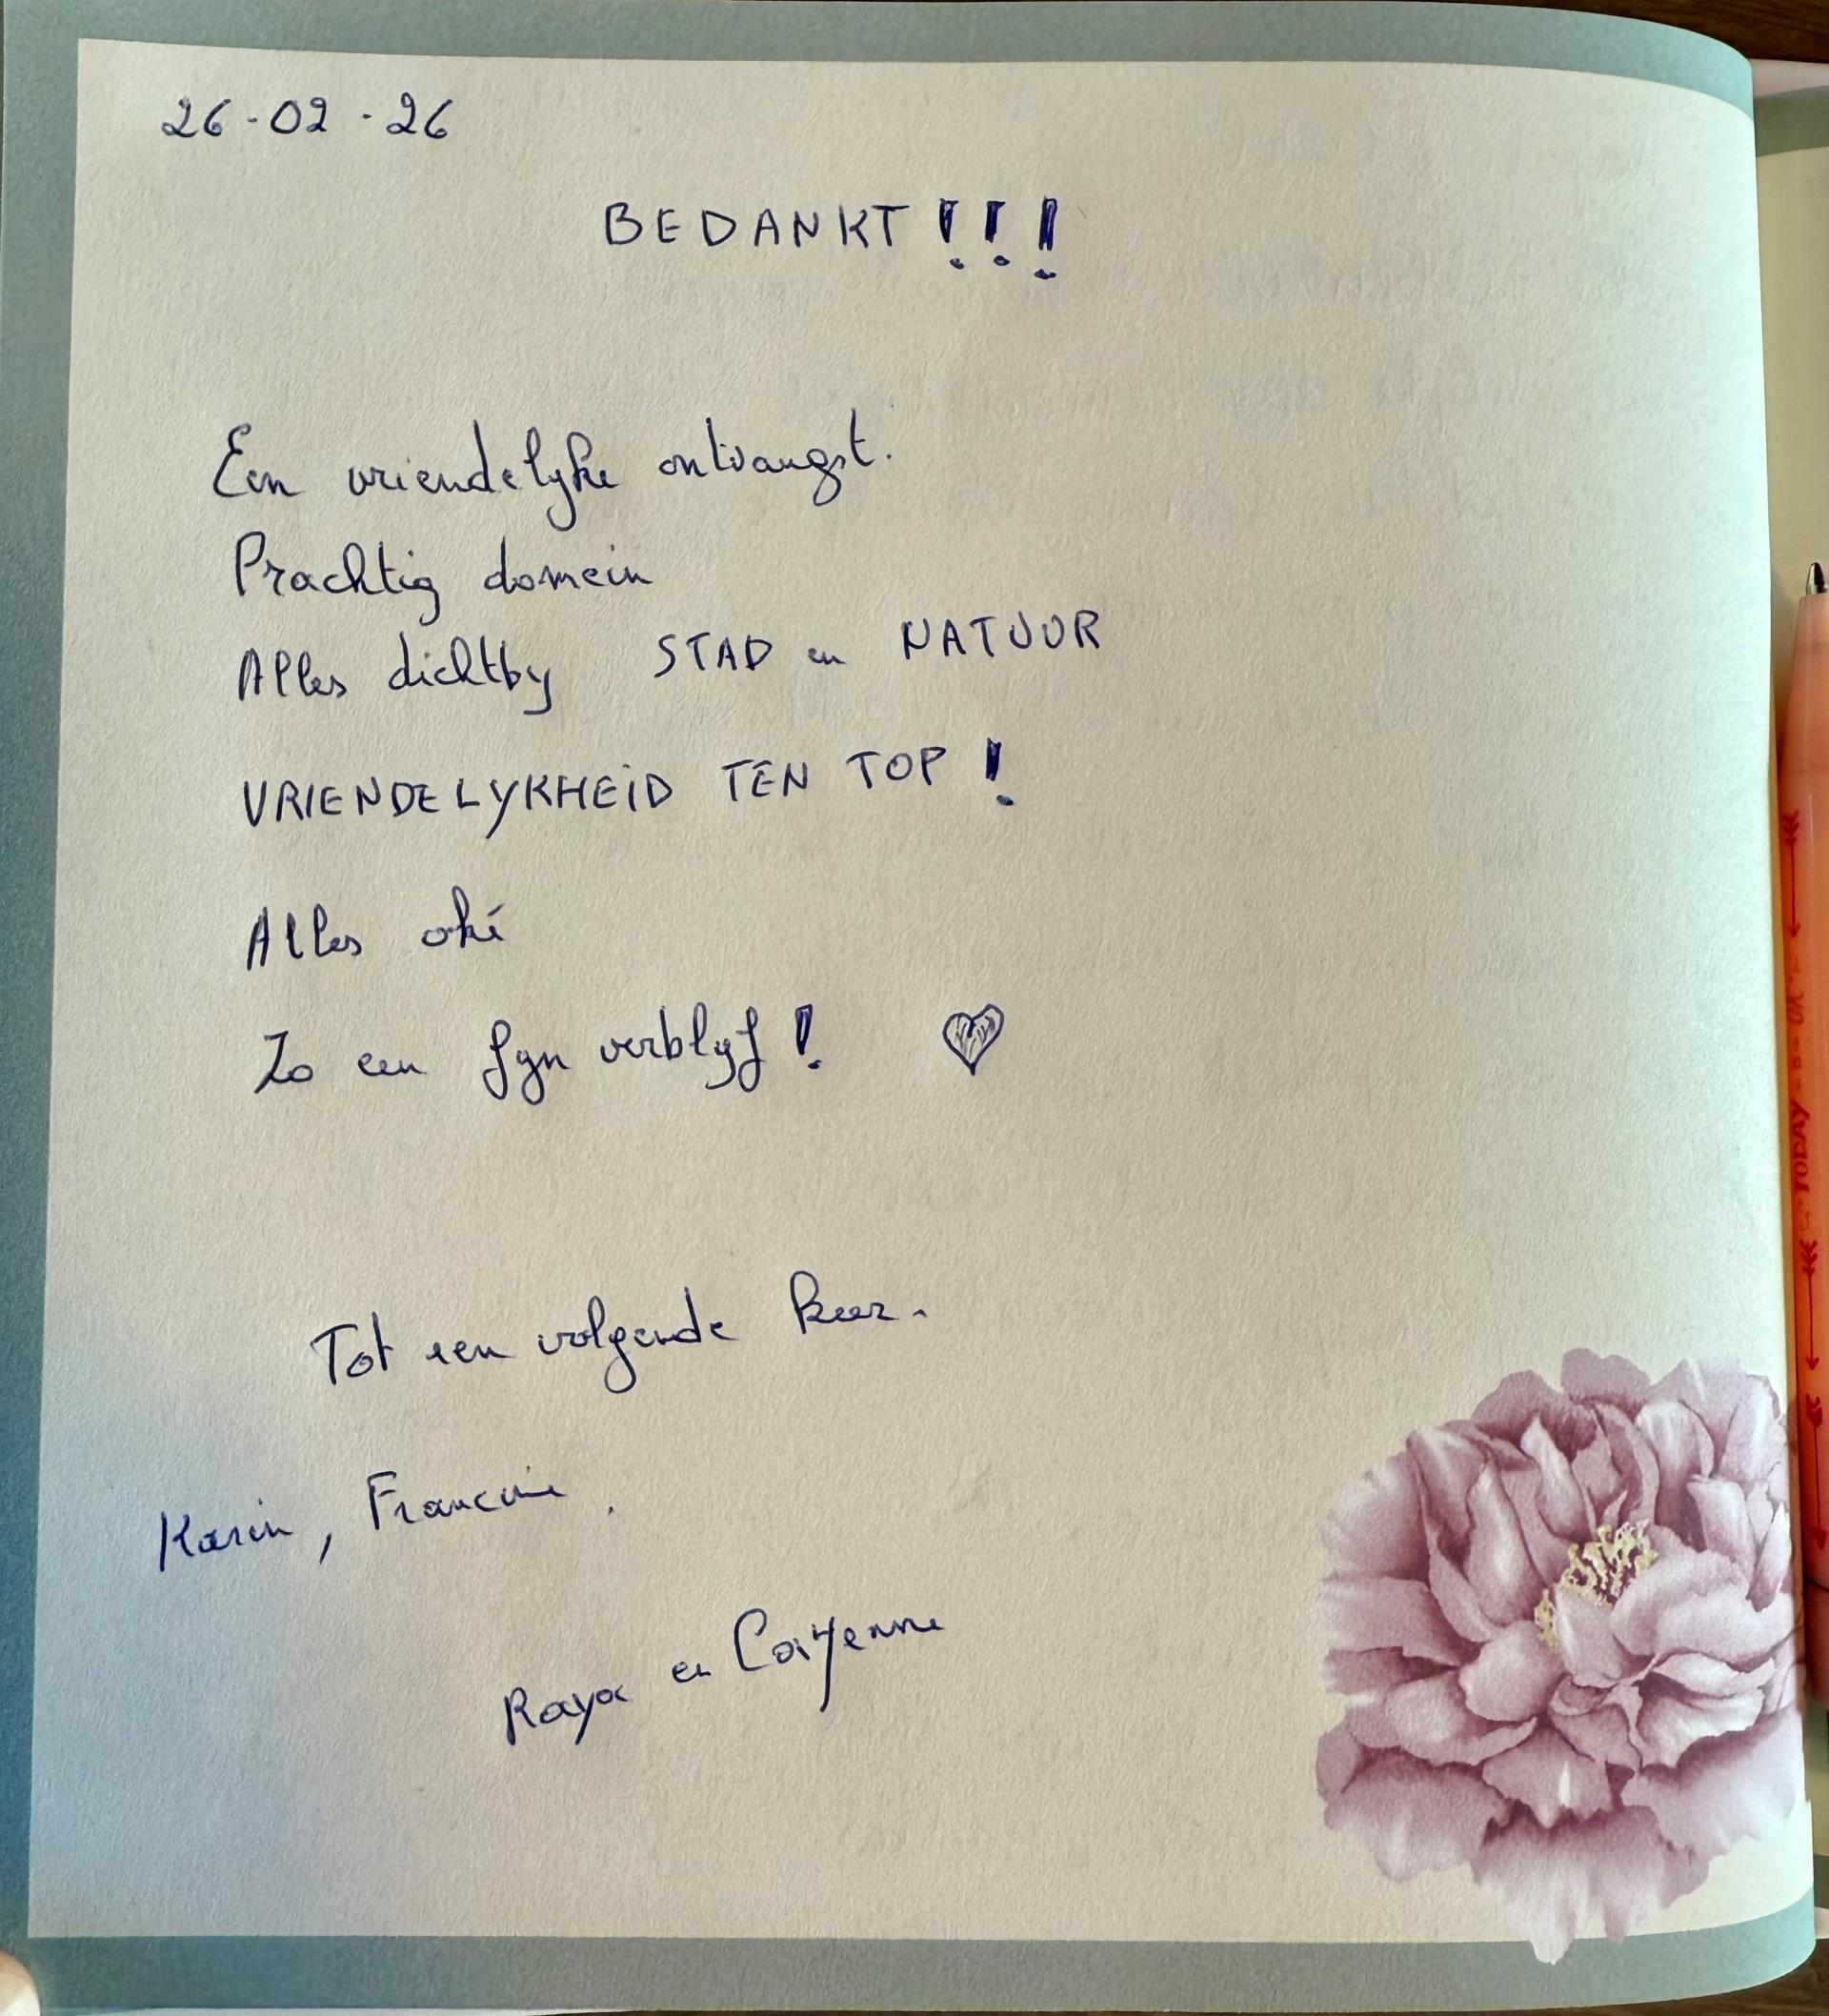 26-02-26
BEDANKT!!!
Een vriendelyke ontvangst.
Prachtig domein
Alles dichtby STAD en NATUUR
VRIENDELYKHEID TEN TOP!
Alles oké
Zo een fyn verblyf! ♥
Tot een volgende keer.
Karin, Francine,
Raya en Cayenne
TODAY